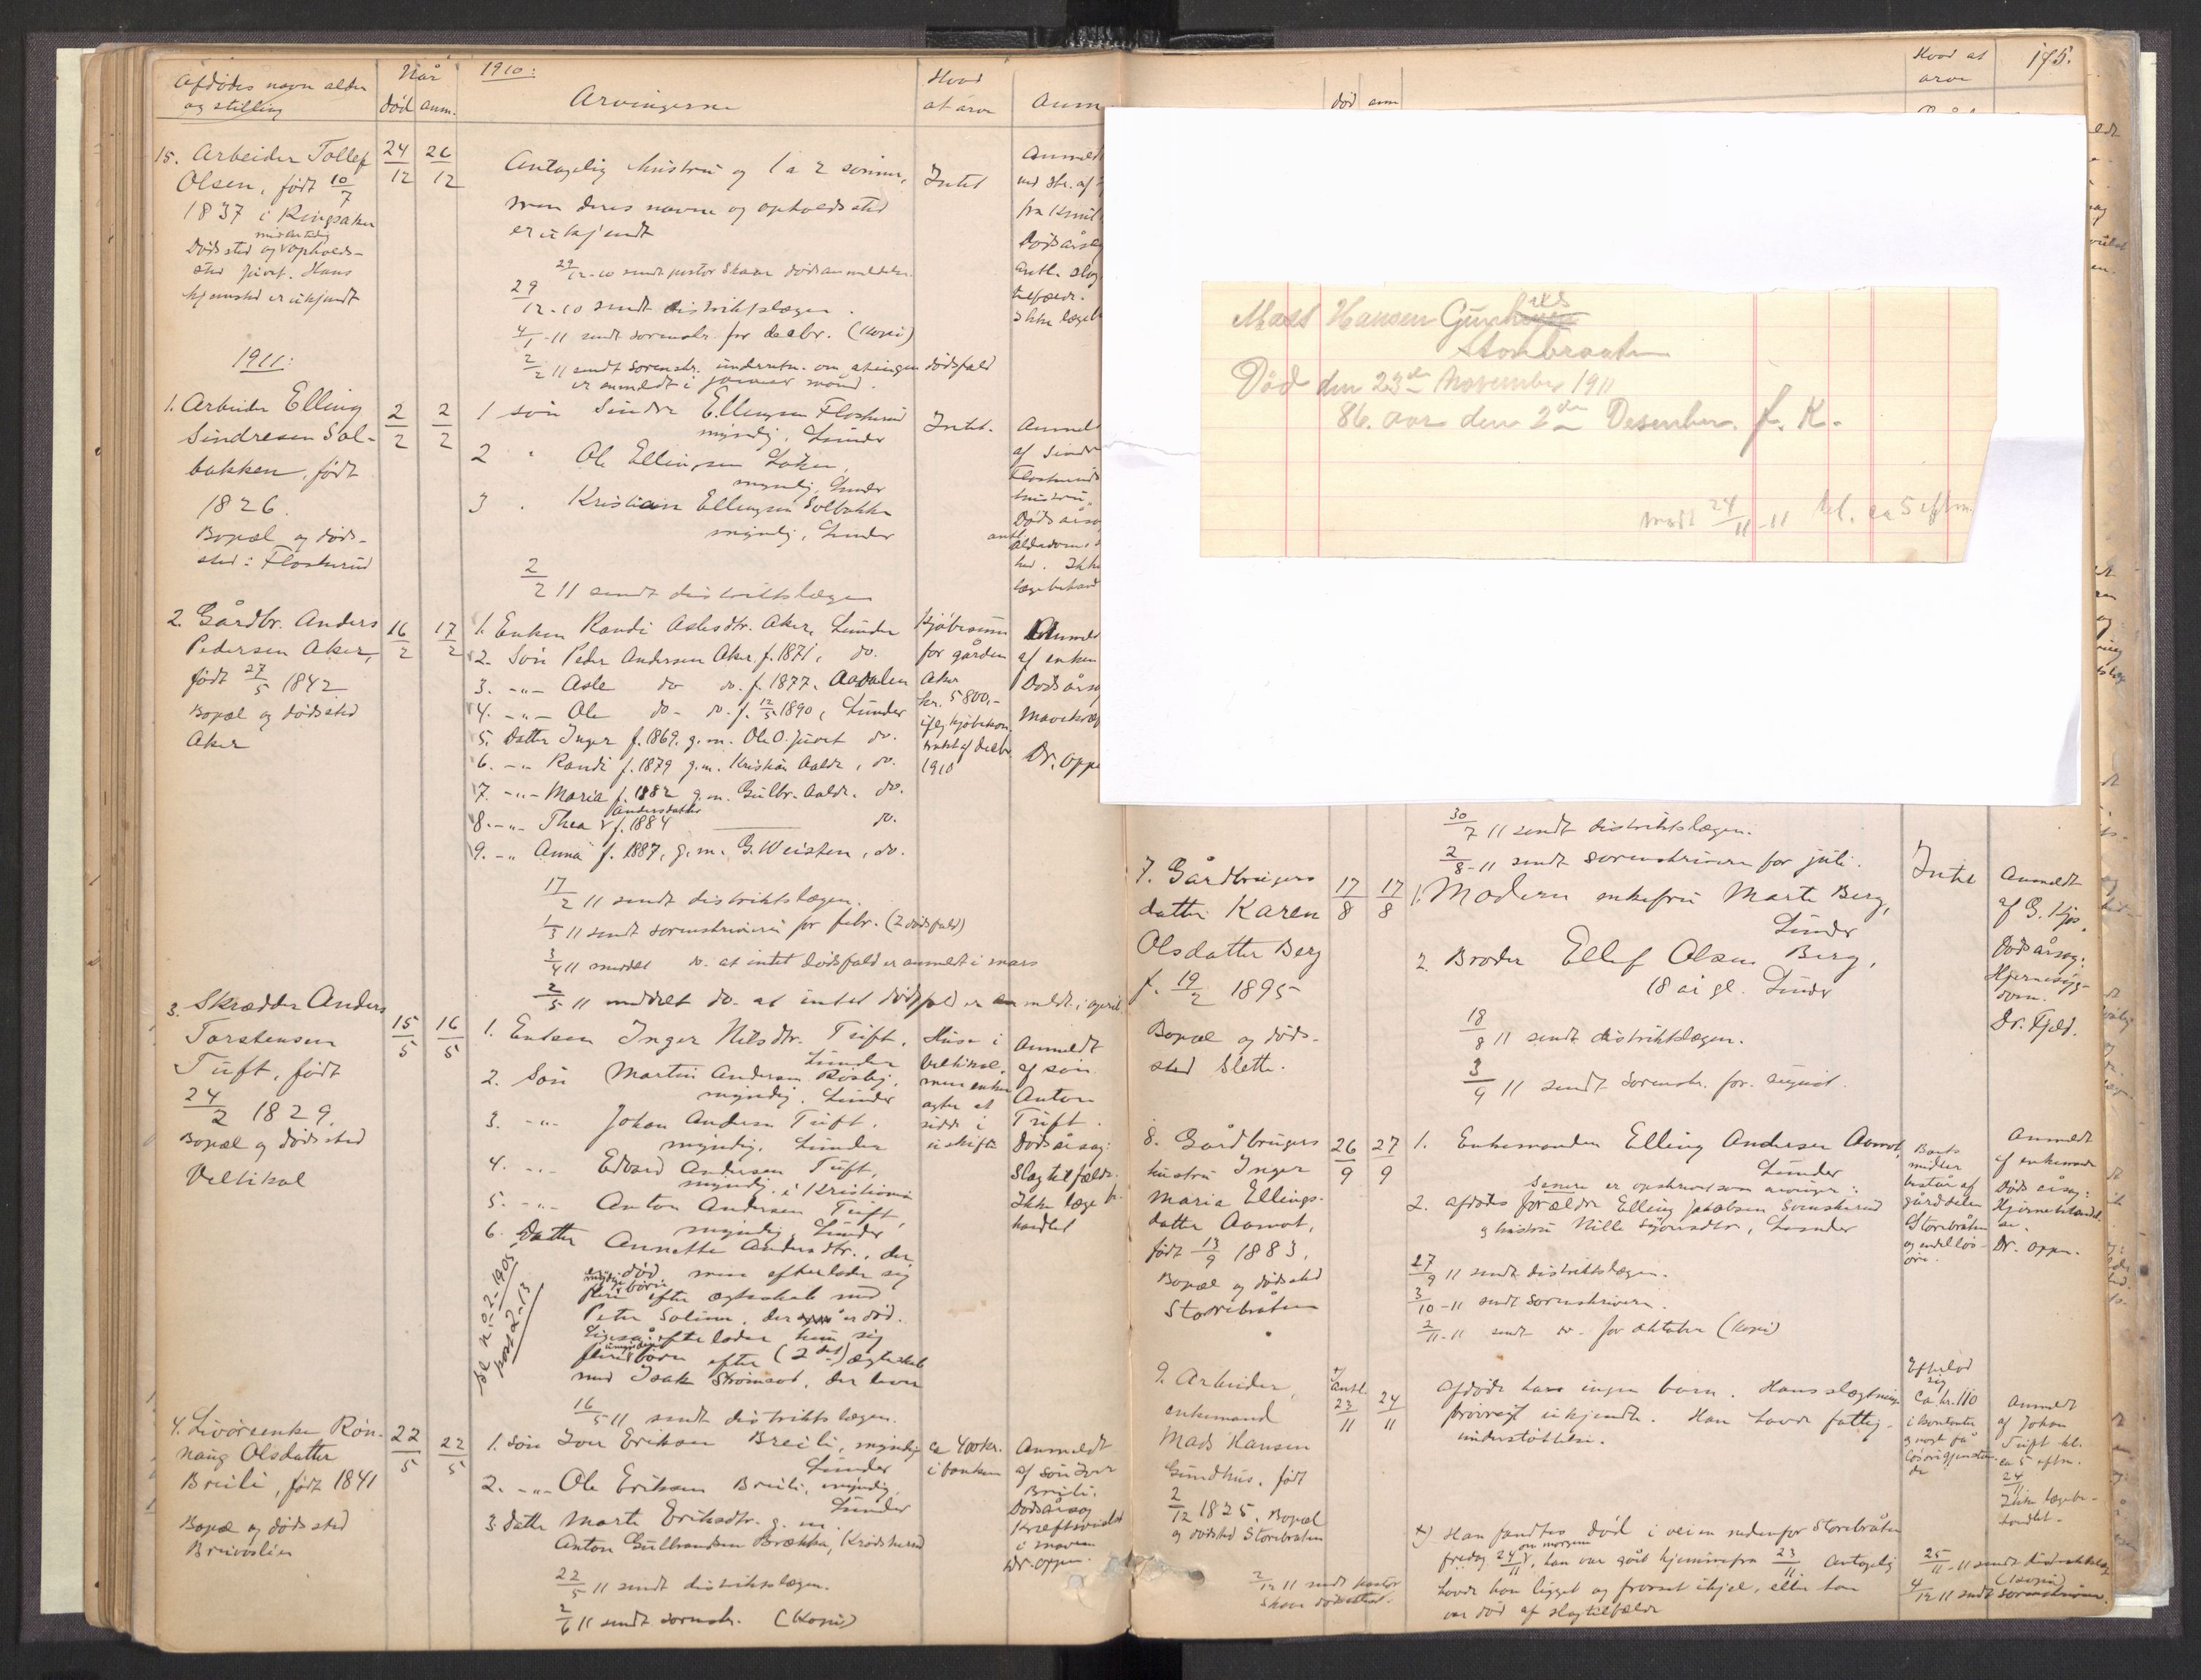 Afdødes navn alder
og stilling
Når
død anm.
1910:
Arvingerne
Hvad
at arve
Anm
15. Arbeider Tollef
Olsen, født 10/7
1837 i Ringsaker
Dødssted og midlertidig opholds-
sted Juvet. Hans
hjemsted er ukjendt
24/12 26/12
Antagelig hustru og 1 a 2 sønner,
men deres navne og opholdssted
er ukjendt
Intet
29/12-10 sendt pastor Skaar dødsanmeldelse.
29/12-10 sendt distriktslægen.
4/1-11 sendt sorenskr. for decbr. (Kopi)
2/2 11 sendt sorenskr. underretn. om at ingen dødsfald
er anmeldt i januar måned.
Dødsårsag
antl. slag
tilfælde.
Ikke lægeb
1911:
1. Arbeider Elling
Sindresen Sol-
bakken, født
1826.
Bopæl og døds-
sted: Floskerud
2/2 2/2
1 søn Sindre Ellingsen Floskerud
myndig, Lunder
2 " Ole Ellingsen Løken,
myndig, Lunder
3 " Kristian Ellingsen Solbakke
myndig, Lunder
Intet.
Anmel
af Sindre
Floskeruds
hustru.
Dødsårsa
antl.
Alderdoms
hed. Ikke
lægebehand
2/2 11 sendt distriktslægen
2. Gårdbr. Anders
Pedersen Aker,
født 27/5 1842
Bopæl og dødssted
Aker
16/2 17/2
1. Enken Randi Aslesdtr. Aker, Lunder
2. Søn Peder Andersen Aker f. 1871, do.
3. -"- Asle do do. f. 1877. Aadalen
4. -"- Ole do- do. f. 12/5 1890, Lunder
5. Datter Inger f. 1869. g.m. Ole O. Juvet do.
6. -"- Randi f. 1879 g.m. Kristian Aalde, do.
7. -"- Maria f. 1882 g.m. Gulbr. Aalde. do.
8. -"- Thea Andersdatter f. 1884 do.
9. -"- Anna f. 1887, g.m. G. Weisten, do.
Kjøbesum
for gården
Aker
kr. 5800,-
ifølg kjøbekon
trakt af decbr.
1910
Anmeld
af enken
Dødsårsa
Mavekræf
Dr. Oppe
17/2 11 sendt distriktslægen.
1/3 11 sendt sorenskriveren for febr. (2 dødsfald)
3/4 11 meddelt do. at intet dødsfald er anmeldt i mars
2/5 11 meddelt do. at intet dødsfald er anmeldt i april.
3. Skrædder Anders
Torstensen
Tuft, født
24/2 1829.
Bopæl og dødssted
Veltikol
15/5 16/5
1. Enken Inger Nilsdtr. Tuft,
Lunder
2. Søn Martin Andersen Rosby,
myndig. Lunder
3. -"- Johan Andersen Tuft.
myndig, Lunder
4. -"- Edvard Andersen Tuft,
myndig, i Kristiania
5. -"- Anton Andersen Tuft,
myndig, Lunder
6. Datter Annette Andersdtr., der
er død men efterlader sig
myndige
flere børn efter ægteskab med
Peter Solum, der også er død.
Ligeså efterlader hun sig
umyndige
flere børn efter (2det) ægteskab
med Isak Strømsod, der lever
Se n: 2-1905
post 2-13
Huse i
Veltikol,
men enken
agter at
sidde i
uskifte
Anmeldt
af søn
Anton
Tuft.
Dødsårsag:
Slagtilfælde.
Ikke lægebe
handlet
16/5 11 sendt distriktslægen.
4. Livørsenke Røn-
naug Olsdatter
Breili, født 1841
Bopæl og dødssted
22/5 22/5
1. Søn Iver Eriksen Breili, myndig
Lunder
2. -"- Ole Eriksen Breili, myndig,
Lunder
3 datter Marte Eriksdtr. g.m.
Anton Gulbrandsen Brækka, Krødsherred
ca 400 kr.
i banken
Anmeldt
af søn Iver
Breili.
Dødsårsag
Kræftsvulst
i maven
Dr. Oppen.
22/5 11 sendt distriktslægen.
2/6 11 sendt sorenskr. (Kopi)
død anm
Hvad at
arve
175.
Mass Hansen Gundhus
Storbraaten
Död den 23de November 1911
86. aar den 2den Desember. f. K.
mødt 24/11-11 kl. ca 5 eftm
30/7 11 sendt distriktslægen.
2/8-11 sendt sorenskriveren for juli.
7. Gårdbrugers
datter Karen
Olsdatter Berg
f. 19/2 1895
Bopæl og døds-
sted Slette.
17/8 17/8
1. Moderen enkefru Marte Berg,
Lunder
2. Broder Ellef Olsen Berg,
18 år gl. Lunder
Intet
Anmeldt
af G. Kjos.
Dødsårsag:
Hjernesyg-
dom.
Dr. Fjeld.
18/8 11 sendt distriktslægen.
3/9 11 sendt sorenskr. for august.
8. Gårdbrugers
hustru Inger
Maria Ellings-
datter Aamot,
født 13/9 1883.
Bopæl og dødssted
Storebråten
26/9 27/9
1. Enkemanden Elling Andersen Aamot,
Lunder
Senere er opskrevet som arvinger:
2. afdødes forældre Elling Jakobsen Svenskerud
og hustru Nille Sjongsdtr, Lunder
Boets
midler
består af
gårddelen
Storebråten
og endel løs-
øre.
Anmeldt
af enkemand
Døds årsag:
Hjernebetændel
se.
Dr. Oppen.
27/9 11 sendt distriktslægen.
3/10-11 sendt sorenskriveren.
2/11-11 sendt do. for oktober (kopi)
9. Arbeider,
enkemand
Mads Hansen
Gundhus, født
2/12 1825. Bopæl
og dødssted Storebraten
x) antl.
23/11 24/11
Afdøde har ingen børn. Hans slægtninge
forøvrigt ukjendte. Han havde fattig-
understøttelse.
Efterlod
sig
ca kr. 110
i kontanter
og nogle få
løsøregjenstan-
de
Anmeldt
af Johan
Tuft kl.
ca 5 eftm.
24/11
Ikke lægebe-
handlet.
x) Han fandtes død i veien nedenfor Storebråten
fredag 24/11 om morgenen, han var gået hjemmefra 23/11. Antagelig
havde han ligget og frosset ihjel, eller han
var død af slagtilfælde
2/12 11 sendt pastor
Skaar dødsattest.
25/11-11 sendt distriktslæg
(kopi)
4/12 11 sendt sorenskriveren.